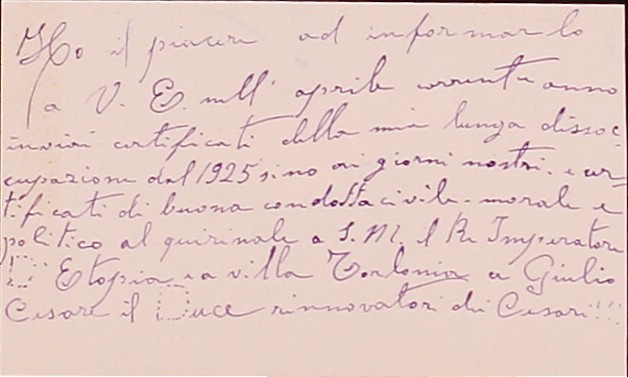 Ho il piacere ad informarlo
a V. E. nell' aprile corrente anno
inviai certificati della mia lunga disoc-
cupazione dal 1925 sino ai giorni nostri. e cer-
tificati di buona condotta civile - morale e
politico al quirinale a S. M. il Re Imperatore
D' Etopia e a villa Torlonia a Giulio
Cesare il Duce rinnovatori dei Cesari!!!